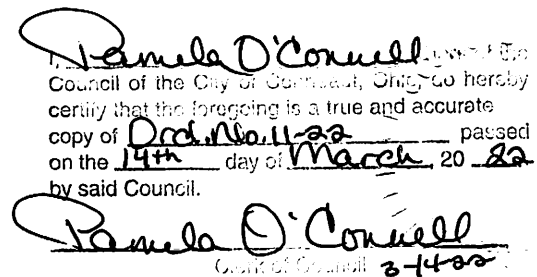 I, Pamela O'Connell, Clerk of the
Council of the City of Conneaut, Ohio, do hereby
certify that the foregoing is a true and accurate
copy of Ord. No. 11-22 passed
on the 14th day of March, 20 22
by said Council.
Pamela O'Connell
Clerk of Council 3-14-22